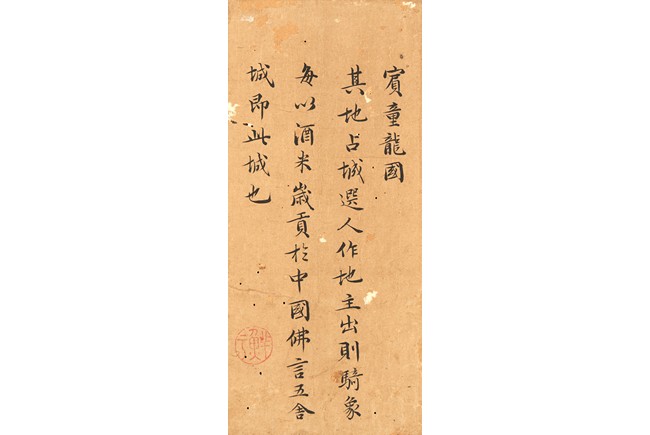 賓童龍國
其地占城選人作地主出則騎象
每以酒米歲貢於中國佛言五舍
城即此城也